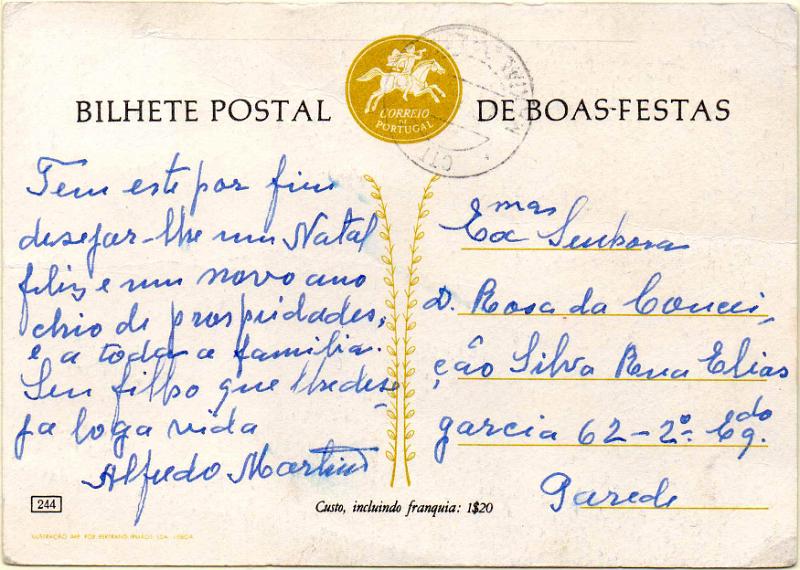 BILHETE POSTAL DE BOAS-FESTAS
CORREIO
DE
PORTUGAL
CTT
Tem este por fim
desejar-lhe um Natal
feliz e um novo ano
chio de prospridades,
e a toda a familia.
Seu filho que lhe dese-
ja loga vida
Alfredo Martins
Exmas
Senhora
D. Rosa da Concei,
ção Silva Rua Elias
garcia 62-2º Eq.do
Parede
244
Custo, incluindo franquia: 1$20
ILUSTRAÇÃO IMP. POR BERTRAND IRMÃOS, LDA. LISBOA